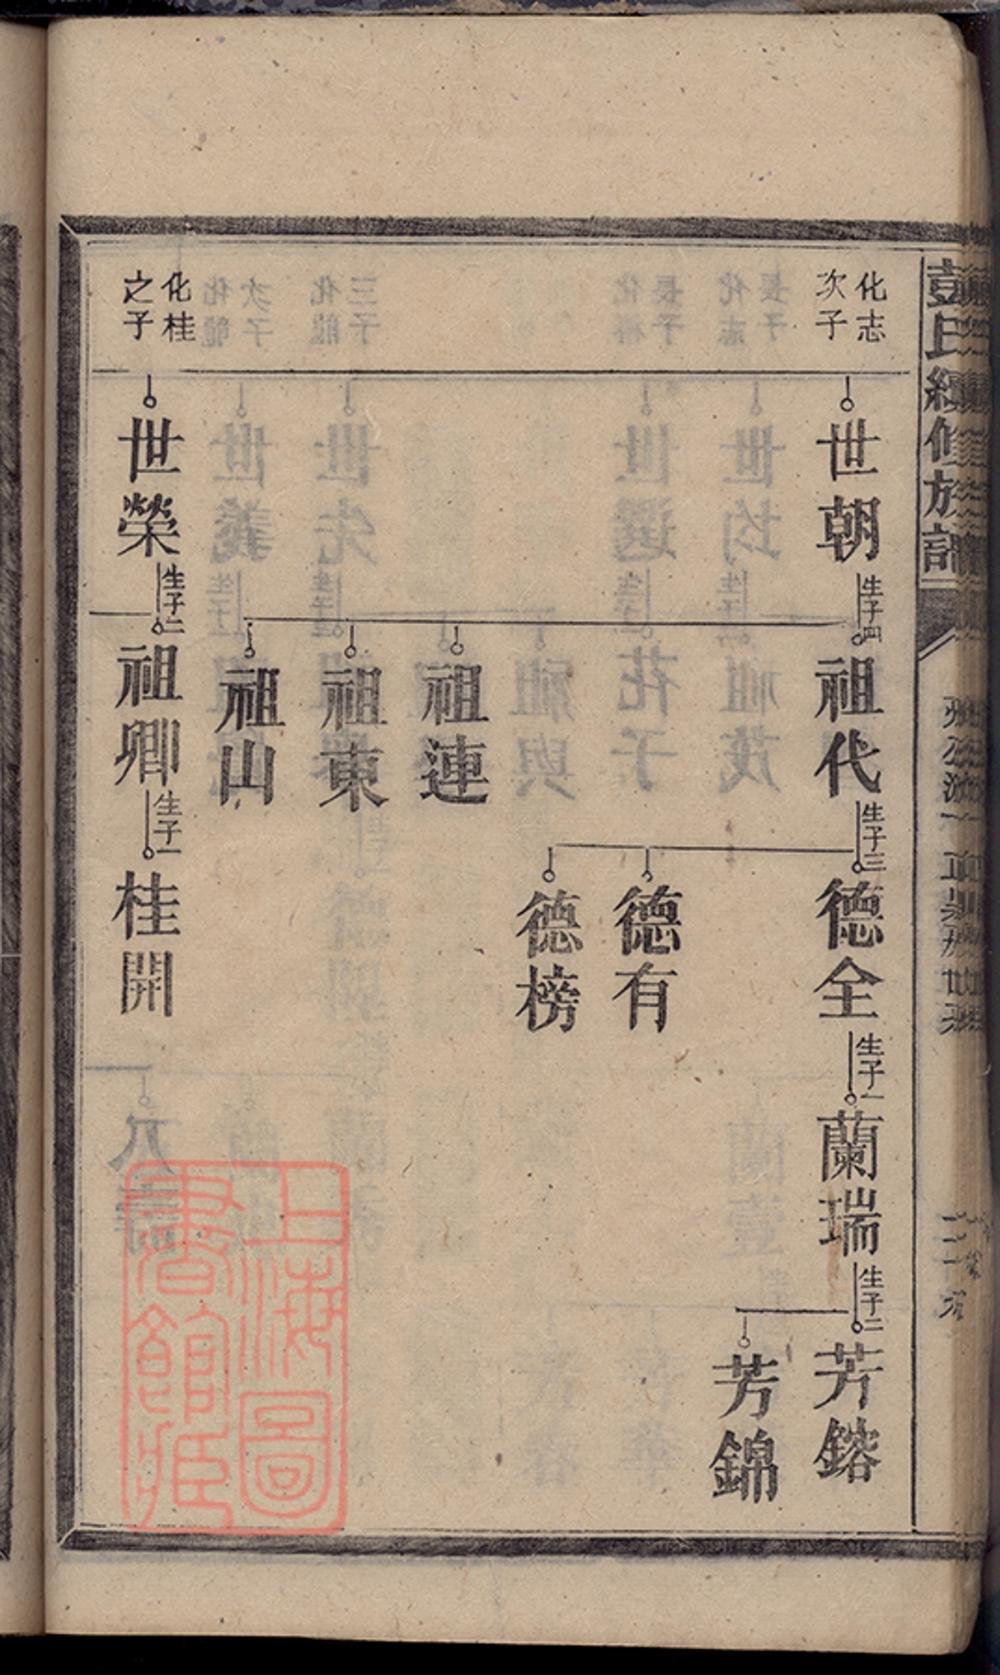 彭氏續修族譜
化志
次子
世朝
生子四
祖代
生子三
德全
生子一
蘭瑞
生子二
芳鎔
芳錦
德有
德榜
祖連
祖東
祖山
化桂
之子
世榮
生子二
祖卿
生子一
桂開
上海圖
書館藏